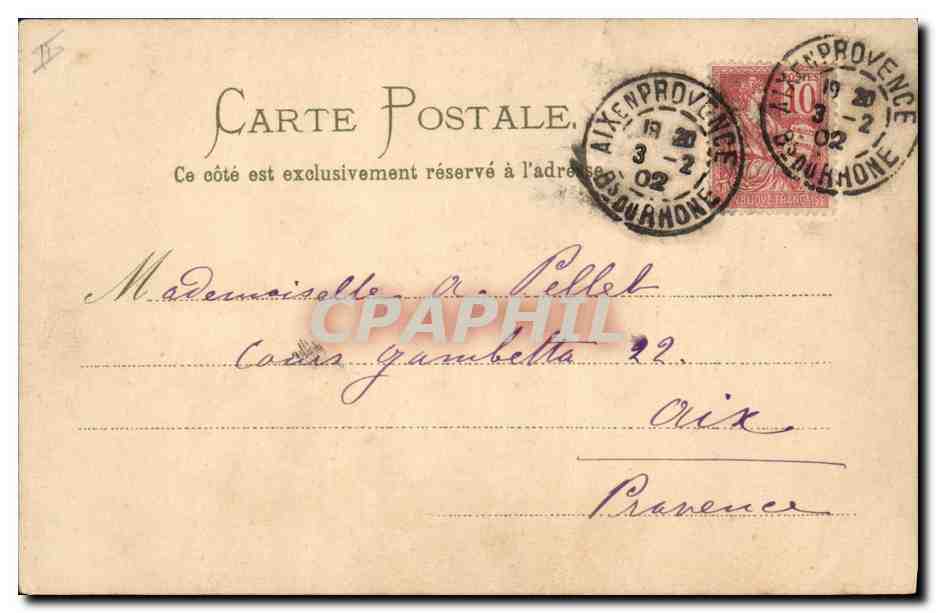 II
CARTE POSTALE.
Ce côté est exclusivement réservé à l'adresse
AIX EN PROVENCE
19 20
3 -2
02
BS DU RHONE
POSTES
10
RÉPUBLIQUE FRANÇAISE
AIX EN PROVENCE
19 20
3 -2
02
BS DU RHONE
Mademoiselle A. Pellet
CPAPHIL
Cours Gambetta 22.
Aix
Provence